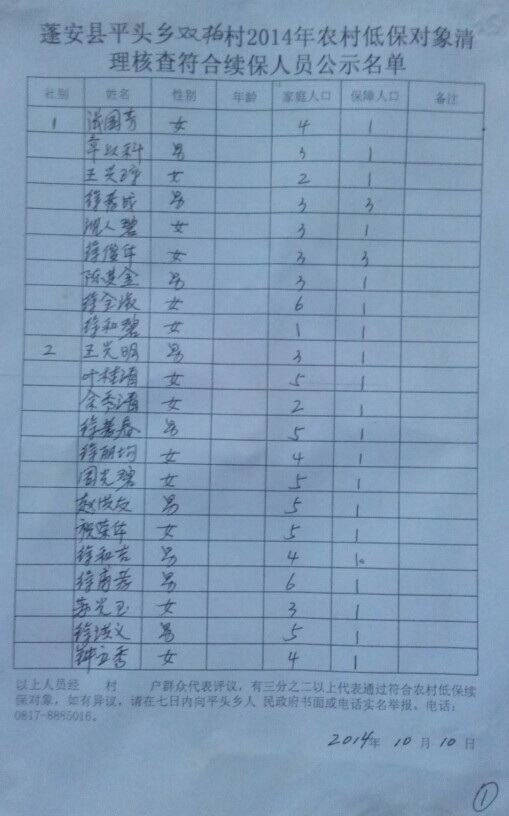 蓬安县平头乡双柏村2014年农村低保对象清
理核查符合续保人员公示名单
社别 姓名 性别 年龄 家庭人口 保障人口 备注
1 国芳 女 4 1
辛以科 男 3 1
王 女 2 1
徐秀成 男 3 3
人碧 女 3 1
徐俊华 女 3 3
陈其金 男 3 1
徐全淑 女 6 1
徐和碧 女 1 1
2 王光明 男 3 1
叶桂清 女 5 1
余秀清 女 2 1
徐春 男 5 1
徐 女 4 1
周光碧 女 5 1
赵洪友 男 5 1
祝荣华 女 5 1
徐和吉 男 4 1
徐 男 6 1
光玉 女 3 1
徐洪义 男 5 1
钟立秀 女 4 1
以上人员经 村 户群众代表评议，有三分之二以上代表通过符合农村低保续
保对象，如有异议，请在七日内向平头乡人 民政府书面或电话实名举报。电话：
0817-8885016。
2014年 10 月 10 日
1